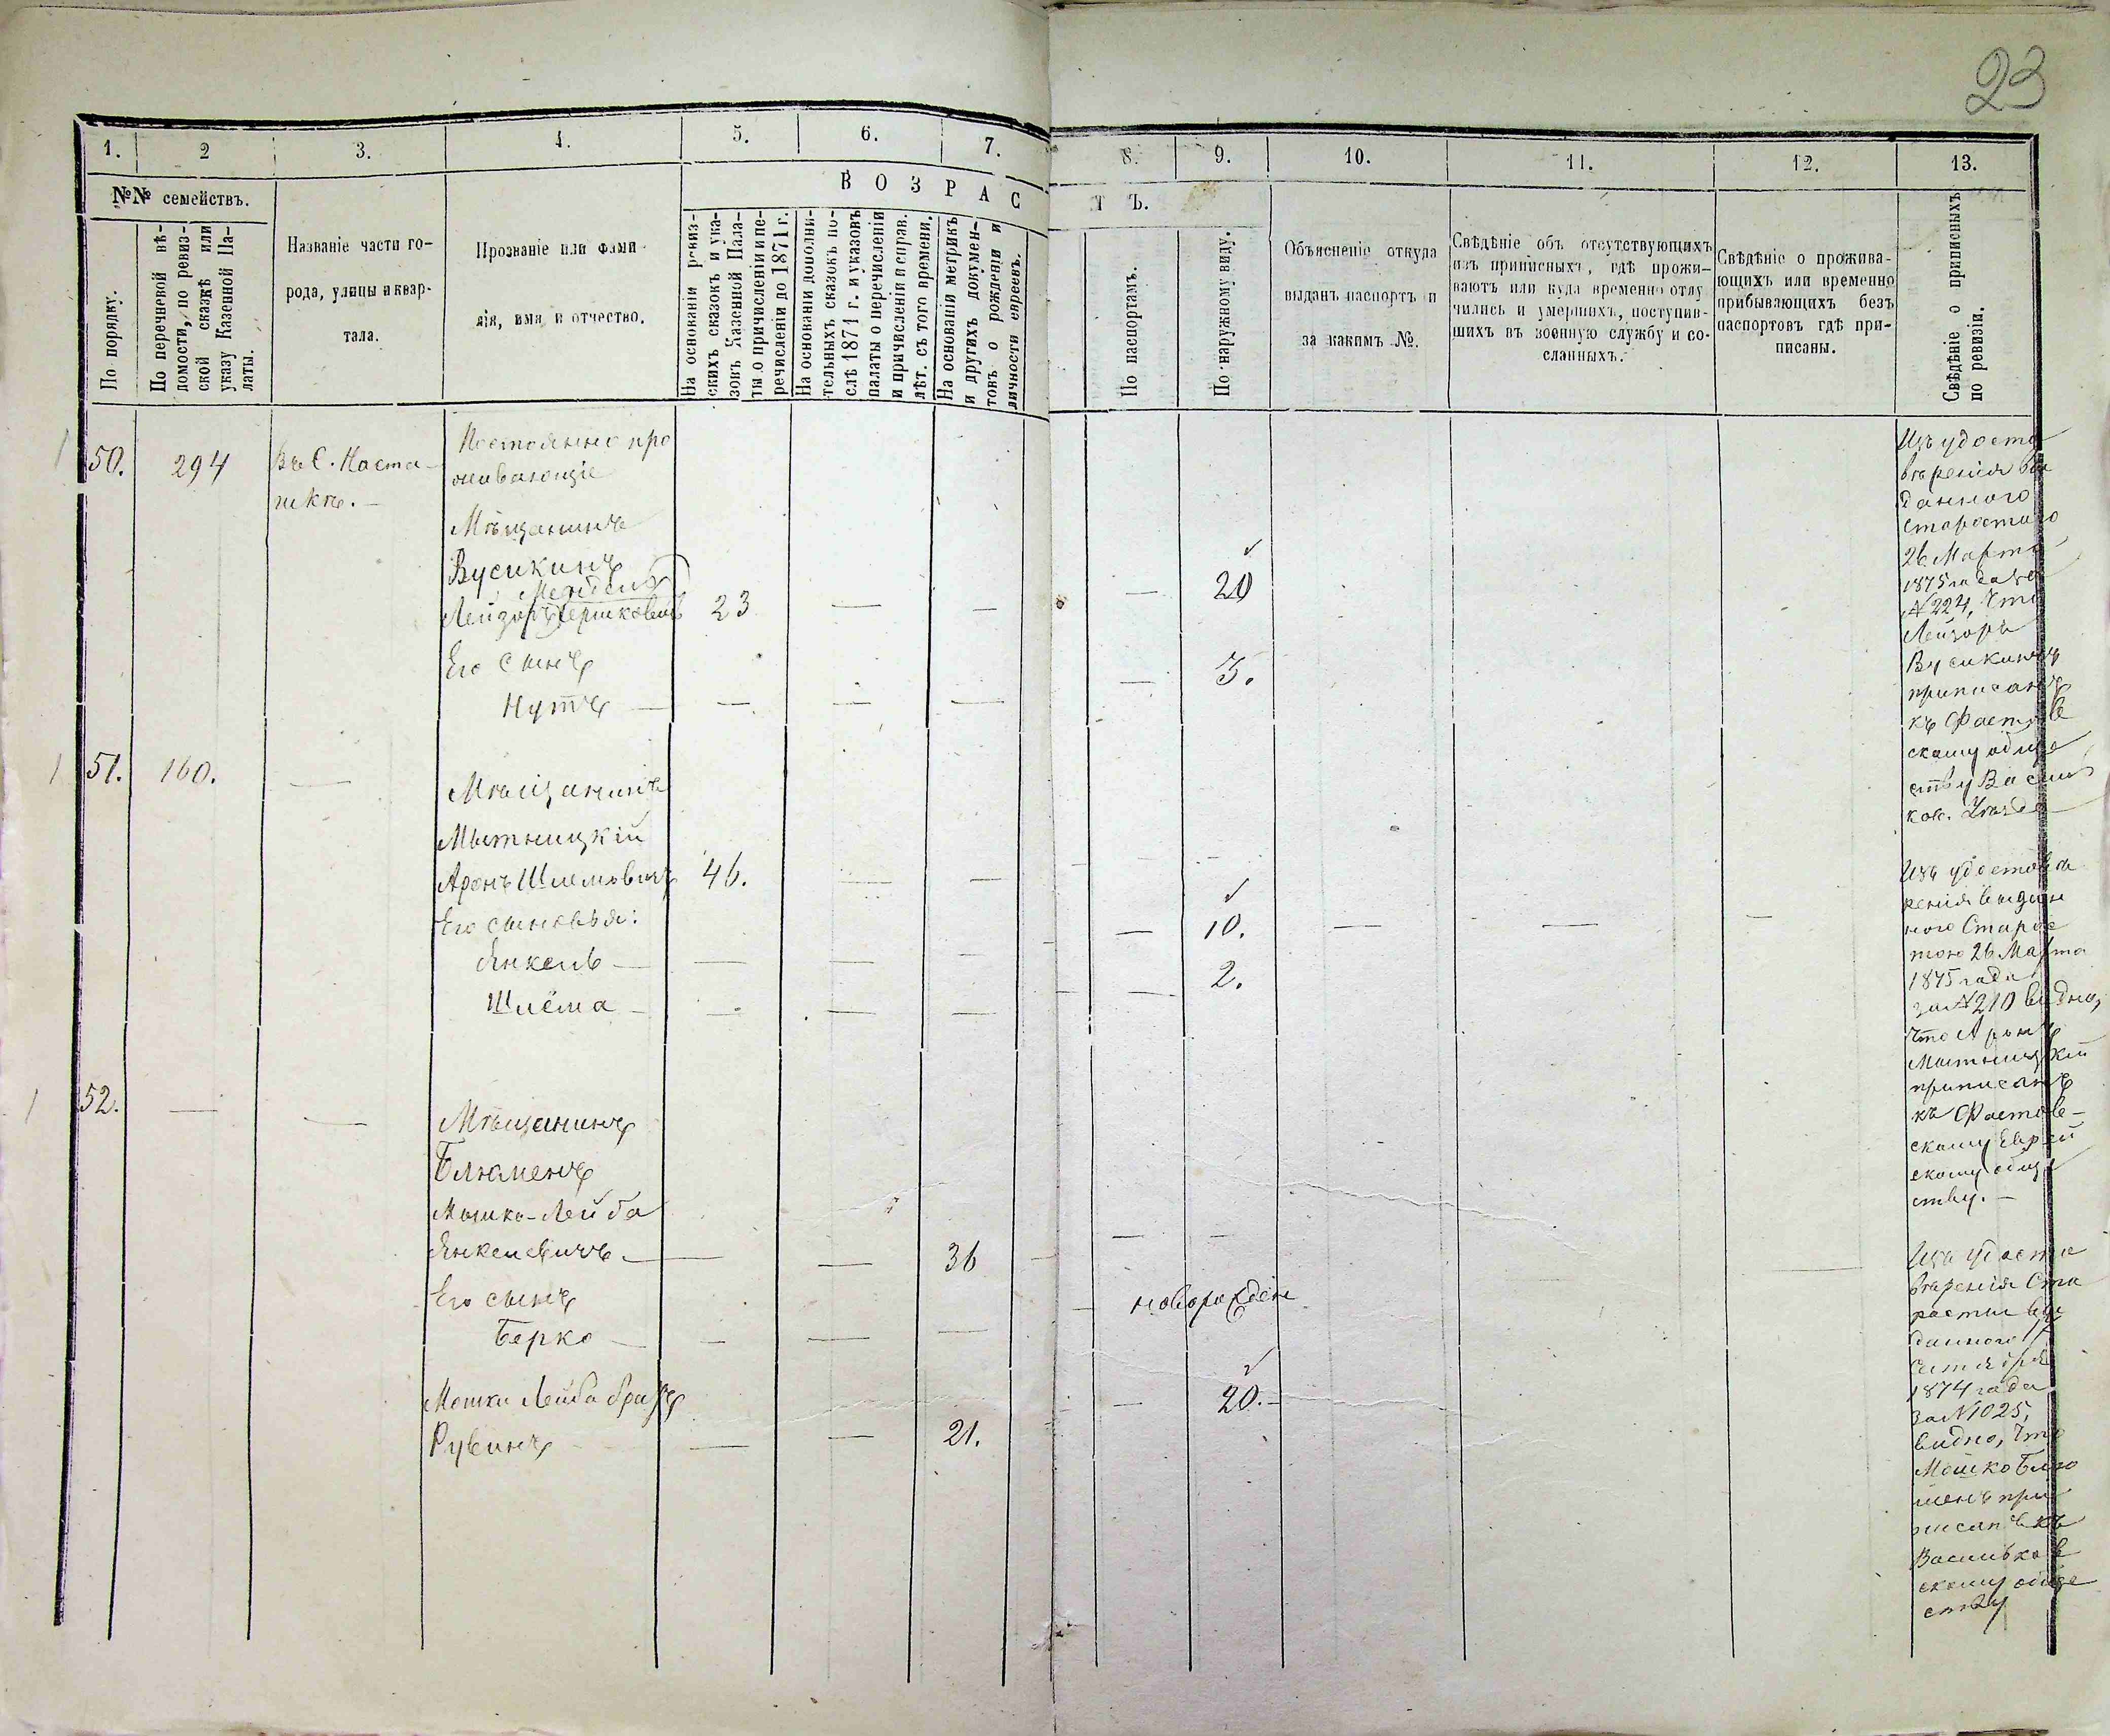 23
1. 2 3. 4. 5. 6. 7. 8. 9. 10. 11. 12. 13.
№№ семействъ.
По порядку.
По перечневой вѣ-
домости, по ревиз-
ской сказкѣ или
указу Казенной Па-
латы.
Названіе части го-
рода, улицы и квар-
тала.
Прозваніе или фами-
лія, имя и отчество.
ВОЗРАСТЪ.
На основаніи ревиз-
скихъ сказокъ и ука-
зовъ Казенной Пала-
ты о причисленіи и пе-
речисленіи до 1871 г.
На основаніи дополни-
тельныхъ сказокъ по-
слѣ 1871 г. и указовъ
палаты о перечисленіи
и причисленіи и справ.
лѣт. съ того времени.
На основаніи метрикъ
и другихъ докумен-
товъ о рожденіи и
личности евреевъ.
По паспортамъ.
По наружному виду.
Объясненіе откуда
выданъ паспортъ и
за какимъ №.
Свѣдѣніе объ отсутствующихъ
изъ приписныхъ, гдѣ прожи-
ваютъ или куда временно отлу
чились и умершихъ, поступив-
шихъ въ военную службу и со-
сланныхъ.
Свѣдѣніе о прожива-
ющихъ или временно
прибывающихъ безъ
паспортовъ гдѣ при-
писаны.
Свѣдѣніе о приписныхъ
по ревизіи.
1 50. 294
Постоянно про
живающіе
Мѣщанинъ
Вусикинъ
Мендель
Лейзоръ Гершковичъ 23 — — — 20
Его сынъ
Нутъ — — — — — 3.
Изъ удосто
вѣренія вы
даннаго
Старостою
26 Марта
1875 года за
№ 224, что
Лейзоръ
Вусикинъ
приписанъ
къ Фастов
скому обще
ству Василь
ков. Уѣзда
1 51. 160. —
Мѣщанинъ
Мытницкій
Аронъ Шлемовичъ 46. — —
Его сыновья:
Янкель — — — — — 10. — — —
Шлёма — — — — — 2.
Изъ удостовѣ
ренія выдан
ного Старос
тою 26 Марта
1875 года
за № 210 видно,
что Аронъ
Мытницкій
приписанъ
къ Фастов-
скому Еврей
скому обще
ству. —
1 52. — —
Мѣщанинъ
Блюменъ
Мошко-Лейба
Янкелевичъ — — 36 — —
Его сынъ
Берко — — — — новорожден
Мошки Лейба братъ
Рувинъ — — 21. — 20. —
Изъ удосто
вѣренія Ста
росты вы
даннаго 17
1874 года
за № 1025,
видно, что
Мошко Блю
менъ при
писанъ къ
Васильков
скому обще
ству